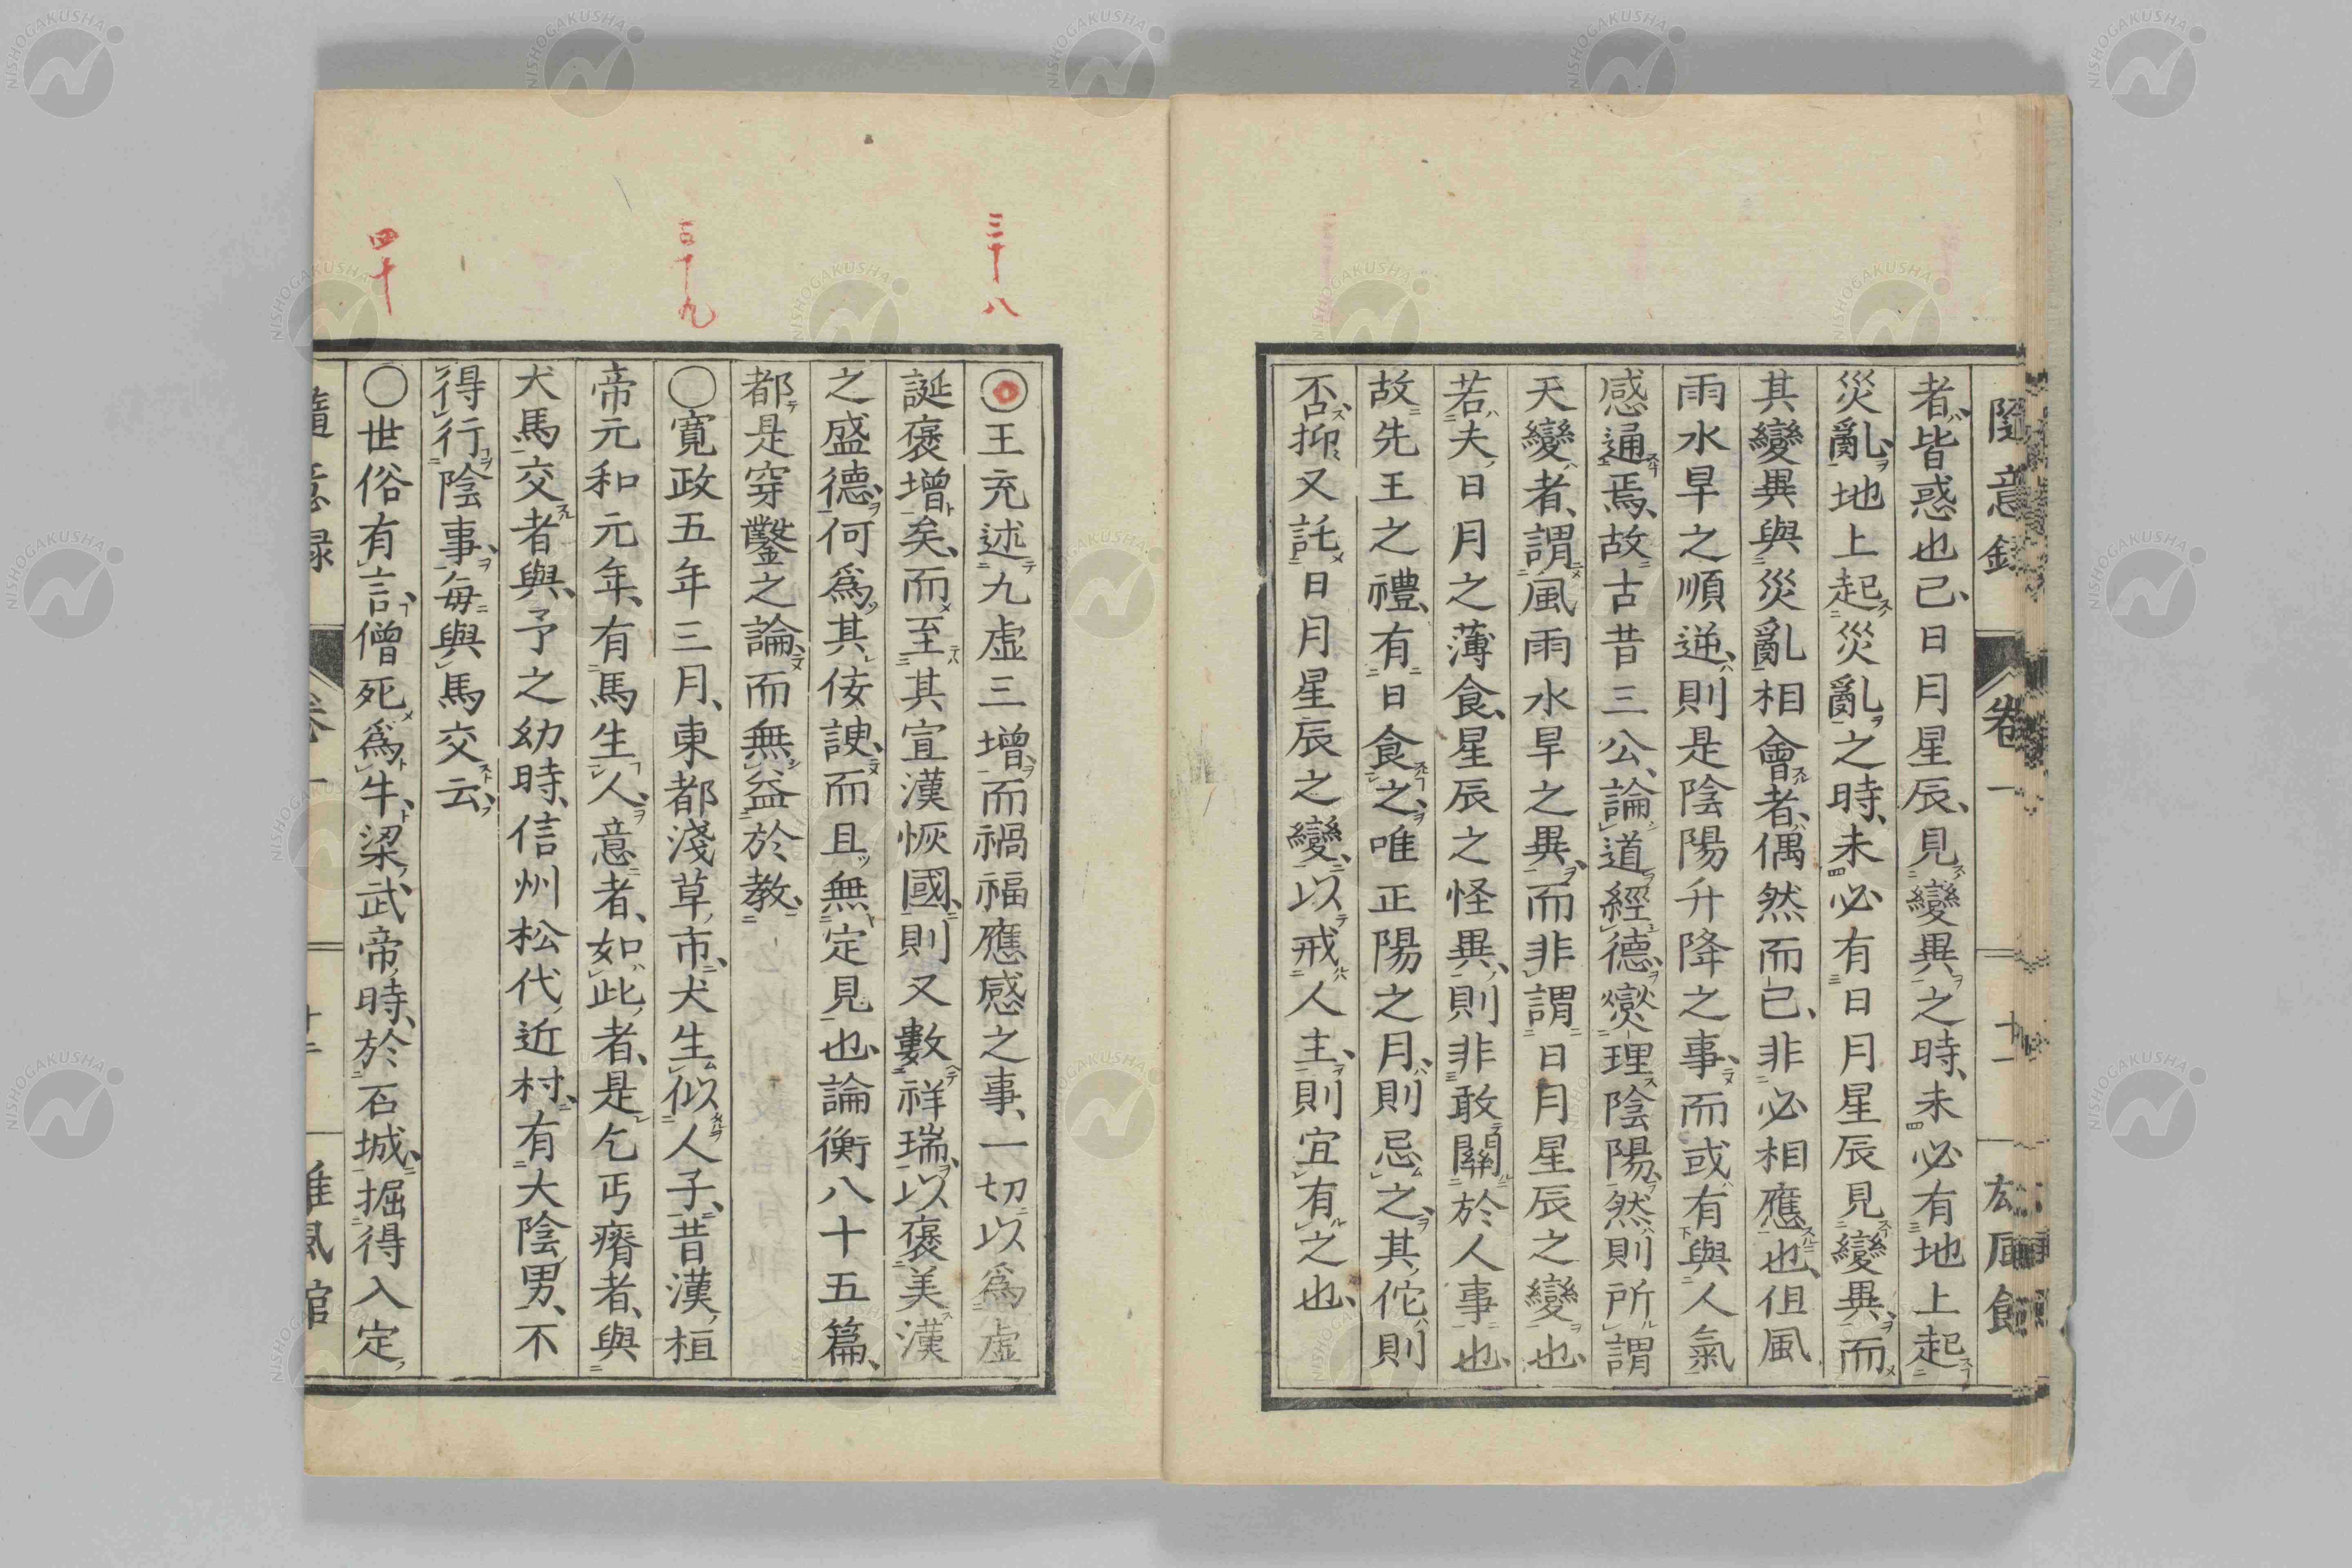 隨意錄 卷一 十一
者皆惑也已日月星辰見變異之時未必有地上起
災亂地上起災亂之時未必有日月星辰見變異而
其變異與災亂相會者偶然而已非必相應也但風
雨水旱之順逆則是陰陽升降之事而或有與人氣
感通焉故古昔三公論道經德爕理陰陽然則所謂
天變者謂風雨水旱之異而非謂日月星辰之變也
若夫日月之薄食星辰之怪異則非敢關於人事也
故先王之禮有日食之唯正陽之月則忌之其佗則
否抑又託日月星辰之變以戒人主則宜有之也
三十八
三十九
四十
王充述九虛三增而禍福應感之事一切以爲虛
誕褒增矣而至其宣漢恢國則又數祥瑞以褒美漢
之盛德何爲其佞諛而且無定見也論衡八十五篇
都是穿鑿之論而無益於教
〇寬政五年三月東都淺草市犬生似人子昔漢桓
帝元和元年有馬生人意者如此者是乞丐瘠者與
犬馬交者與予之幼時信州松代近村有大陰男不
得行陰事每與馬交云
〇世俗有言僧死爲牛梁武帝時於石城掘得入定